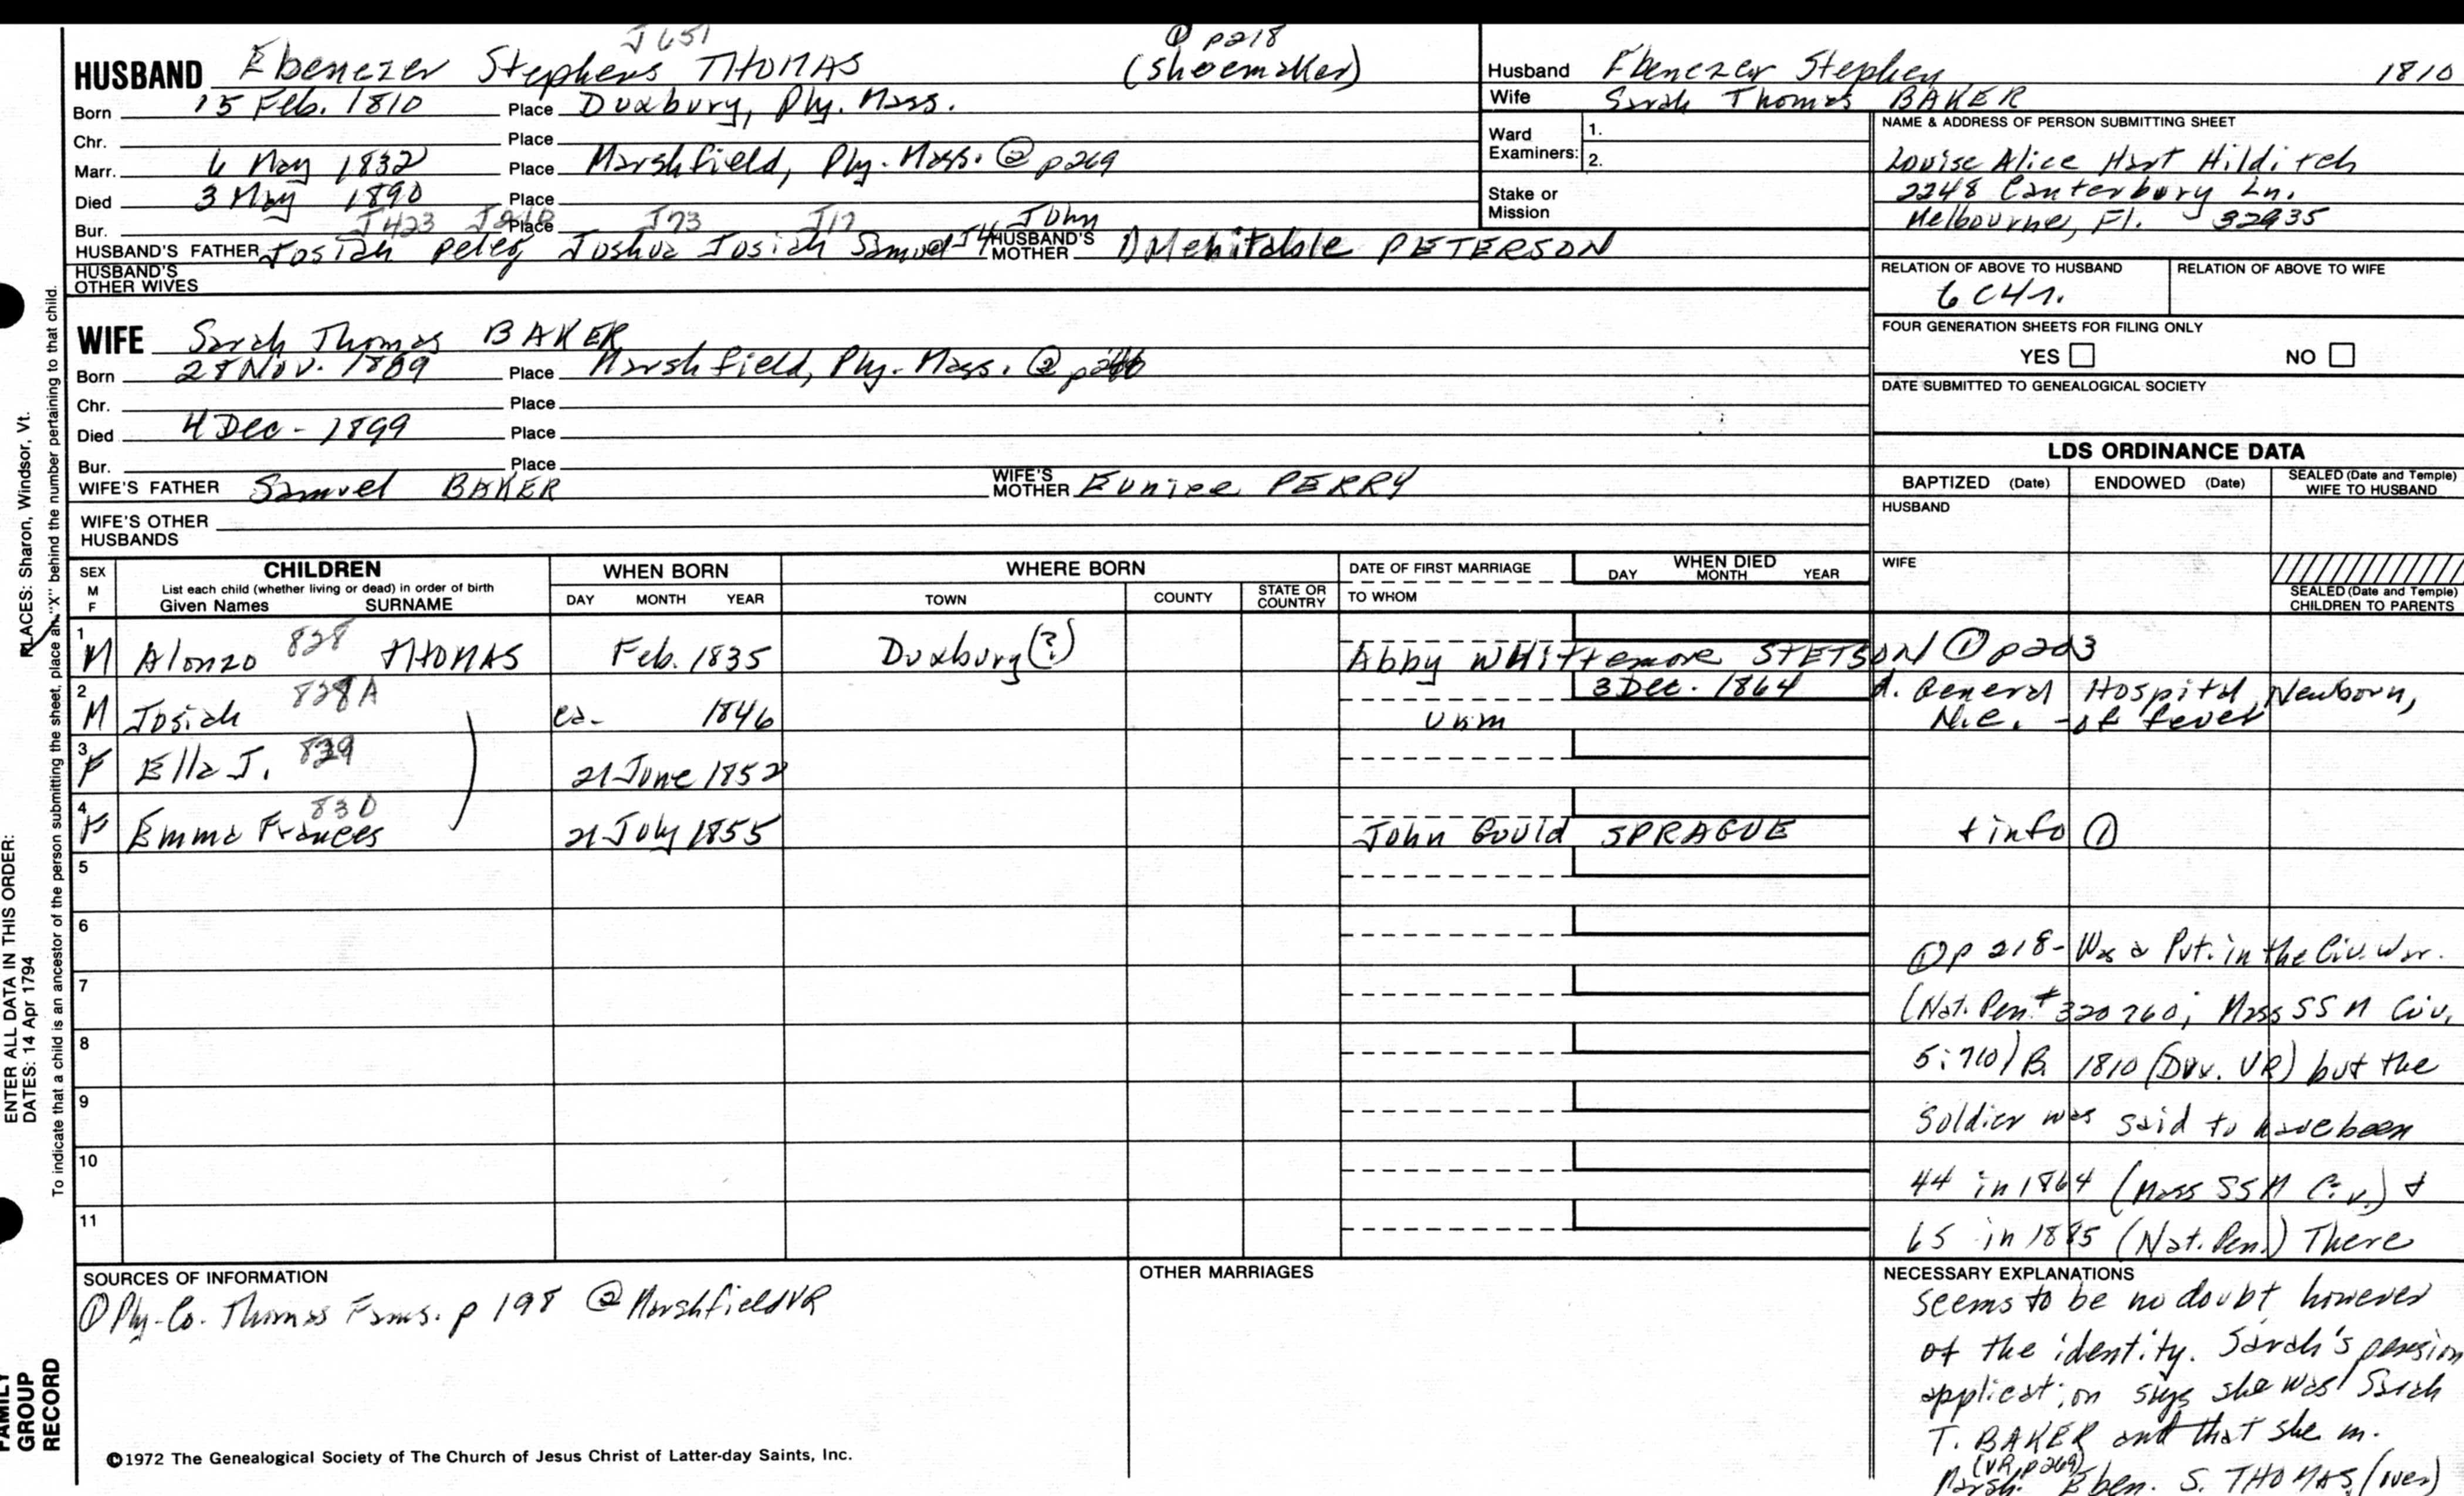 J651
① p218
HUSBAND Ebenezer Stephens THOMAS (shoemaker)
Born 15 Feb. 1810 Place Duxbury, Ply. Mass.
Chr. Place
Marr. 6 May 1832 Place Marshfield, Ply. Mass. @ p269
Died 3 May 1890 Place
Bur. Place
J423 J73 J17 John
HUSBAND'S FATHER Josiah Peleg Joshua Josiah Samuel J4 HUSBAND'S MOTHER 1) Mehitable PETERSON
HUSBAND'S OTHER WIVES
WIFE Sarah Thomas BAKER
Born 28 Nov. 1809 Place Marshfield, Ply. Mass. ②
Chr. Place
Died 4 Dec - 1899 Place
Bur. Place
WIFE'S FATHER Samuel BAKER WIFE'S MOTHER Eunice PERRY
WIFE'S OTHER HUSBANDS
Husband Ebenezer Stephen 1810
Wife Sarah Thomas BAKER
Ward Examiners: 1.
2.
Stake or Mission
NAME & ADDRESS OF PERSON SUBMITTING SHEET
Louise Alice Hart Hilditch
2248 Canterbury Ln.
Melbourne, Fl. 32935
RELATION OF ABOVE TO HUSBAND RELATION OF ABOVE TO WIFE
6C4r.
FOUR GENERATION SHEETS FOR FILING ONLY
YES NO
DATE SUBMITTED TO GENEALOGICAL SOCIETY
LDS ORDINANCE DATA
BAPTIZED (Date) ENDOWED (Date) SEALED (Date and Temple) WIFE TO HUSBAND
HUSBAND
WIFE
SEALED (Date and Temple) CHILDREN TO PARENTS
SEX M F
CHILDREN
List each child (whether living or dead) in order of birth
Given Names SURNAME
WHEN BORN
DAY MONTH YEAR
WHERE BORN
TOWN COUNTY STATE OR COUNTRY
DATE OF FIRST MARRIAGE
TO WHOM
WHEN DIED
DAY MONTH YEAR
1 M Alonzo 828 THOMAS Feb. 1835 Duxbury (?) Abby Whittemore STETSON ① p203
2 M Josiah 828A ca. 1846 unm 3 Dec. 1864 d. General Hospital, Newborn,
N.C. - of fever
3 F Ella J. 829 21 June 1852
4 F Emma Frances 830 21 July 1855 John Gould SPRAGUE + info ①
5
6
7
8
9
10
11
① p 218 - Was a Pvt. in the Civ. War.
(Nat. Pen. # 320760; Mass SS M Civ.
5:710) B. 1810 (Dux. VR) but the
Soldier was said to have been
44 in 1864 (Mass SS M Civ.) &
65 in 1885 (Nat. Pen.) There
NECESSARY EXPLANATIONS
seems to be no doubt however
of the identity. Sarah's pension
application says she was Sarah
T. BAKER and that she m.
(VR, p269)
Marsh. Eben. S. THOMAS (over)
SOURCES OF INFORMATION
① Ply. Co. Thomas Fams. p 198 @ Marshfield VR
OTHER MARRIAGES
©1972 The Genealogical Society of The Church of Jesus Christ of Latter-day Saints, Inc.
FAMILY GROUP RECORD
ENTER ALL DATA IN THIS ORDER:
DATES: 14 Apr 1794
PLACES: Sharon, Windsor, Vt.
To indicate that a child is an ancestor of the person submitting the sheet, place an "X" behind the number pertaining to that child.